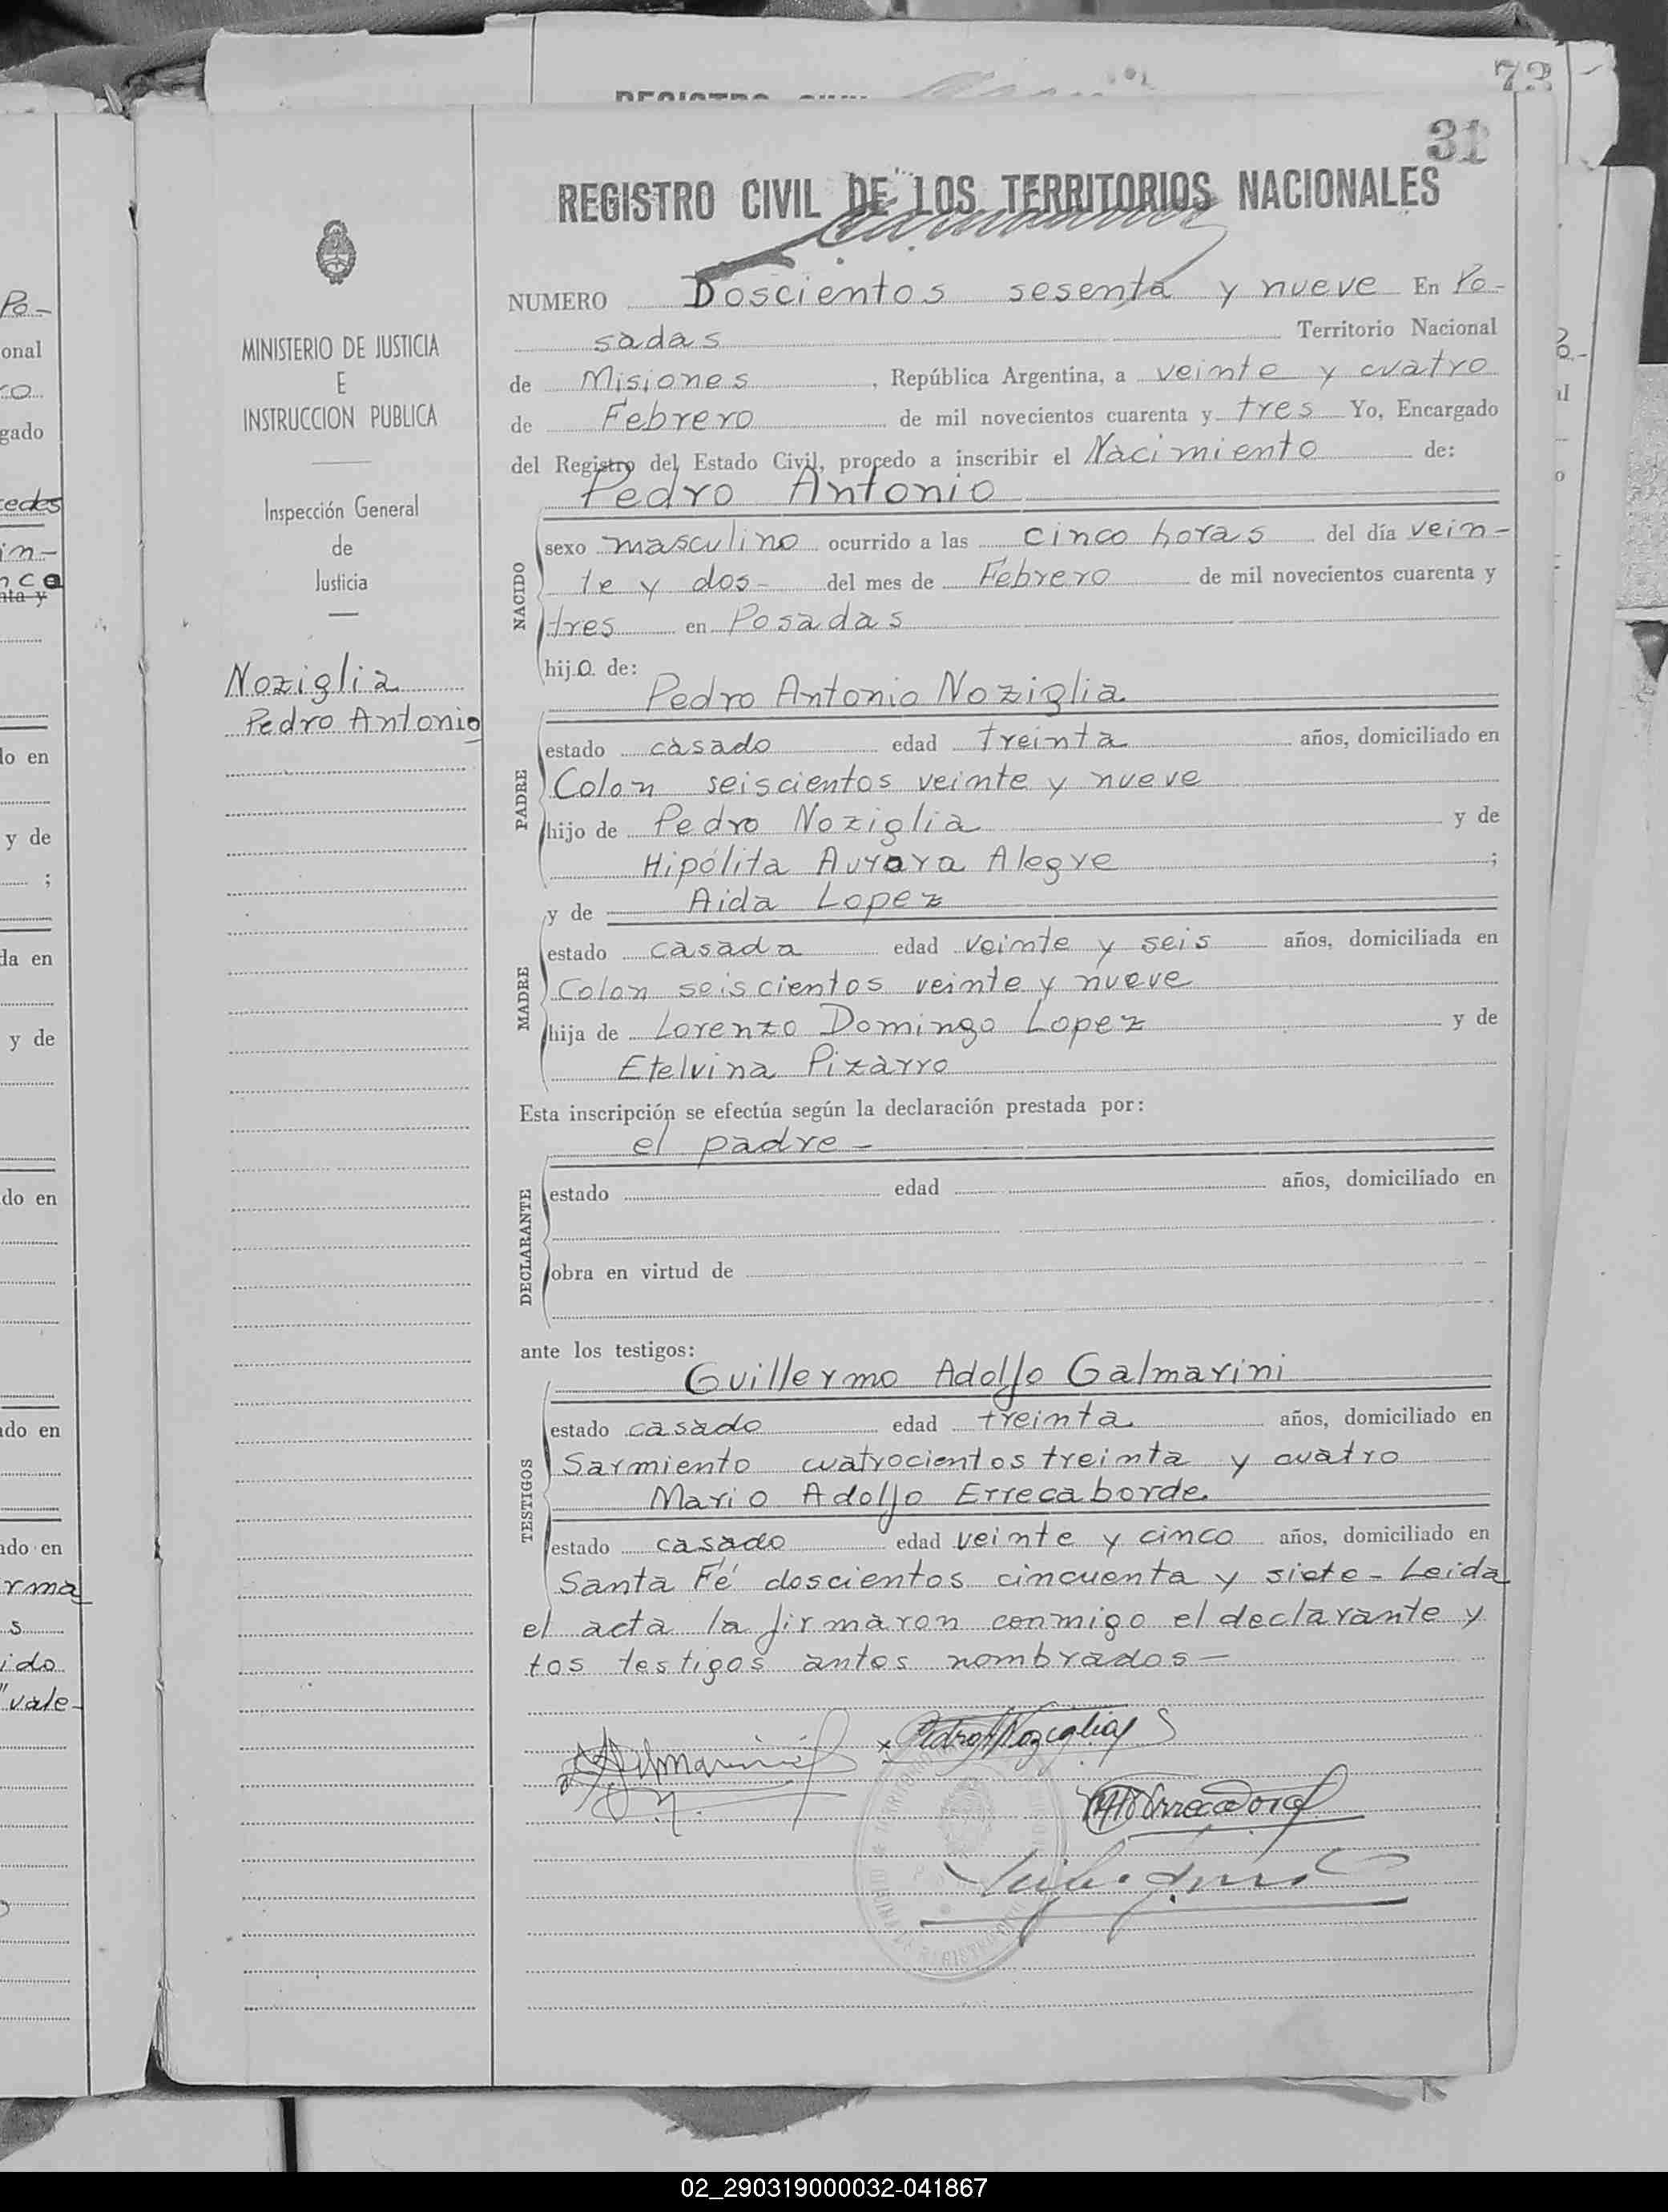 73
31
REGISTRO CIVIL DE LOS TERRITORIOS NACIONALES
MINISTERIO DE JUSTICIA
E
INSTRUCCION PUBLICA
Inspección General
de
Justicia
Noziglia
Pedro Antonio
NUMERO Doscientos sesenta y nueve En Po-
sadas Territorio Nacional
de Misiones, República Argentina, a veinte y cuatro
de Febrero de mil novecientos cuarenta y tres Yo, Encargado
del Registro del Estado Civil, procedo a inscribir el Nacimiento de:
Pedro Antonio
NACIDO
sexo masculino ocurrido a las cinco horas del día vein-
te y dos- del mes de Febrero de mil novecientos cuarenta y
tres en Posadas
hijo de:
Pedro Antonio Noziglia
PADRE
estado casado edad treinta años, domiciliado en
Colon seiscientos veinte y nueve
hijo de Pedro Noziglia y de
Hipólita Aurora Alegre ;
y de Aida Lopez
MADRE
estado casada edad veinte y seis años, domiciliada en
Colon seiscientos veinte y nueve
hija de Lorenzo Domingo Lopez y de
Etelvina Pizarro
Esta inscripción se efectúa según la declaración prestada por:
el padre-
DECLARANTE
estado edad años, domiciliado en
obra en virtud de
ante los testigos:
Guillermo Adolfo Galmarini
TESTIGOS
estado casado edad treinta años, domiciliado en
Sarmiento cuatrocientos treinta y cuatro
Mario Adolfo Errecaborde
estado casado edad veinte y cinco años, domiciliado en
Santa Fé doscientos cincuenta y siete- Leida
el acta la firmaron conmigo el declarante y
los testigos antes nombrados-
Pedro A Noziglia
02_290319000032-041867